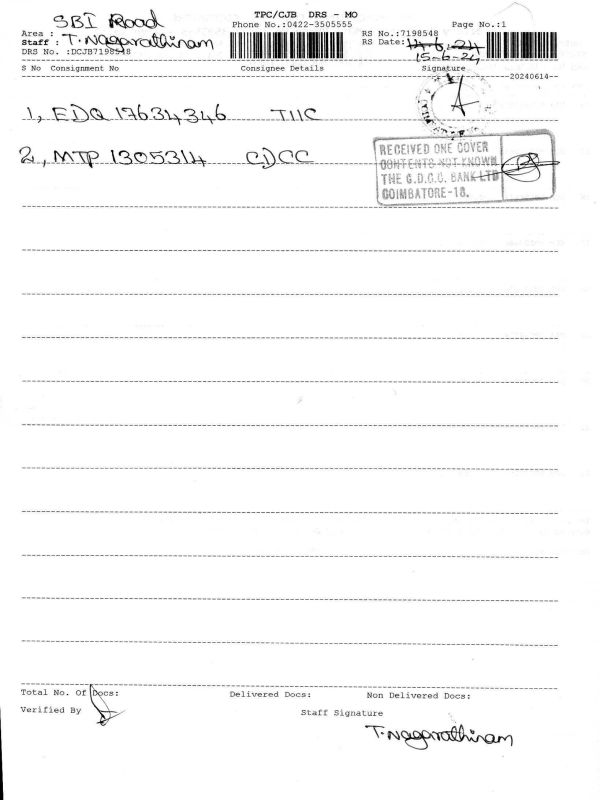 TPC/CJB DRS - MO
SBI Road
Area :
Phone No.:0422-3505555
Page No.:1
Staff : T. Nagarathinam
RS No.:7198548
DRS No. :DCJB7198548
RS Date: 14-6-24
15-6-24
S No Consignment No Consignee Details Signature
--20240614--
1, EDQ 17634346 TIIC
2, MTP 1305314 CDCC
RECEIVED ONE COVER
CONTENTS NOT KNOWN
THE C.D.C.C. BANK LTD
COIMBATORE-18.
Total No. Of Docs: Delivered Docs: Non Delivered Docs:
Verified By
Staff Signature
T. Nagarathinam